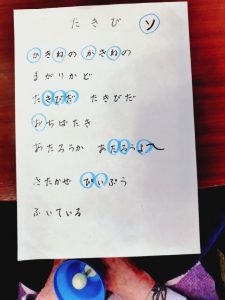 たきび ソ
かきねの かきねの
まがりかど
たきびだ たきびだ
おちばたき
あたろうか あたろうよ
きたかぜ ぴいぷう
ふいている